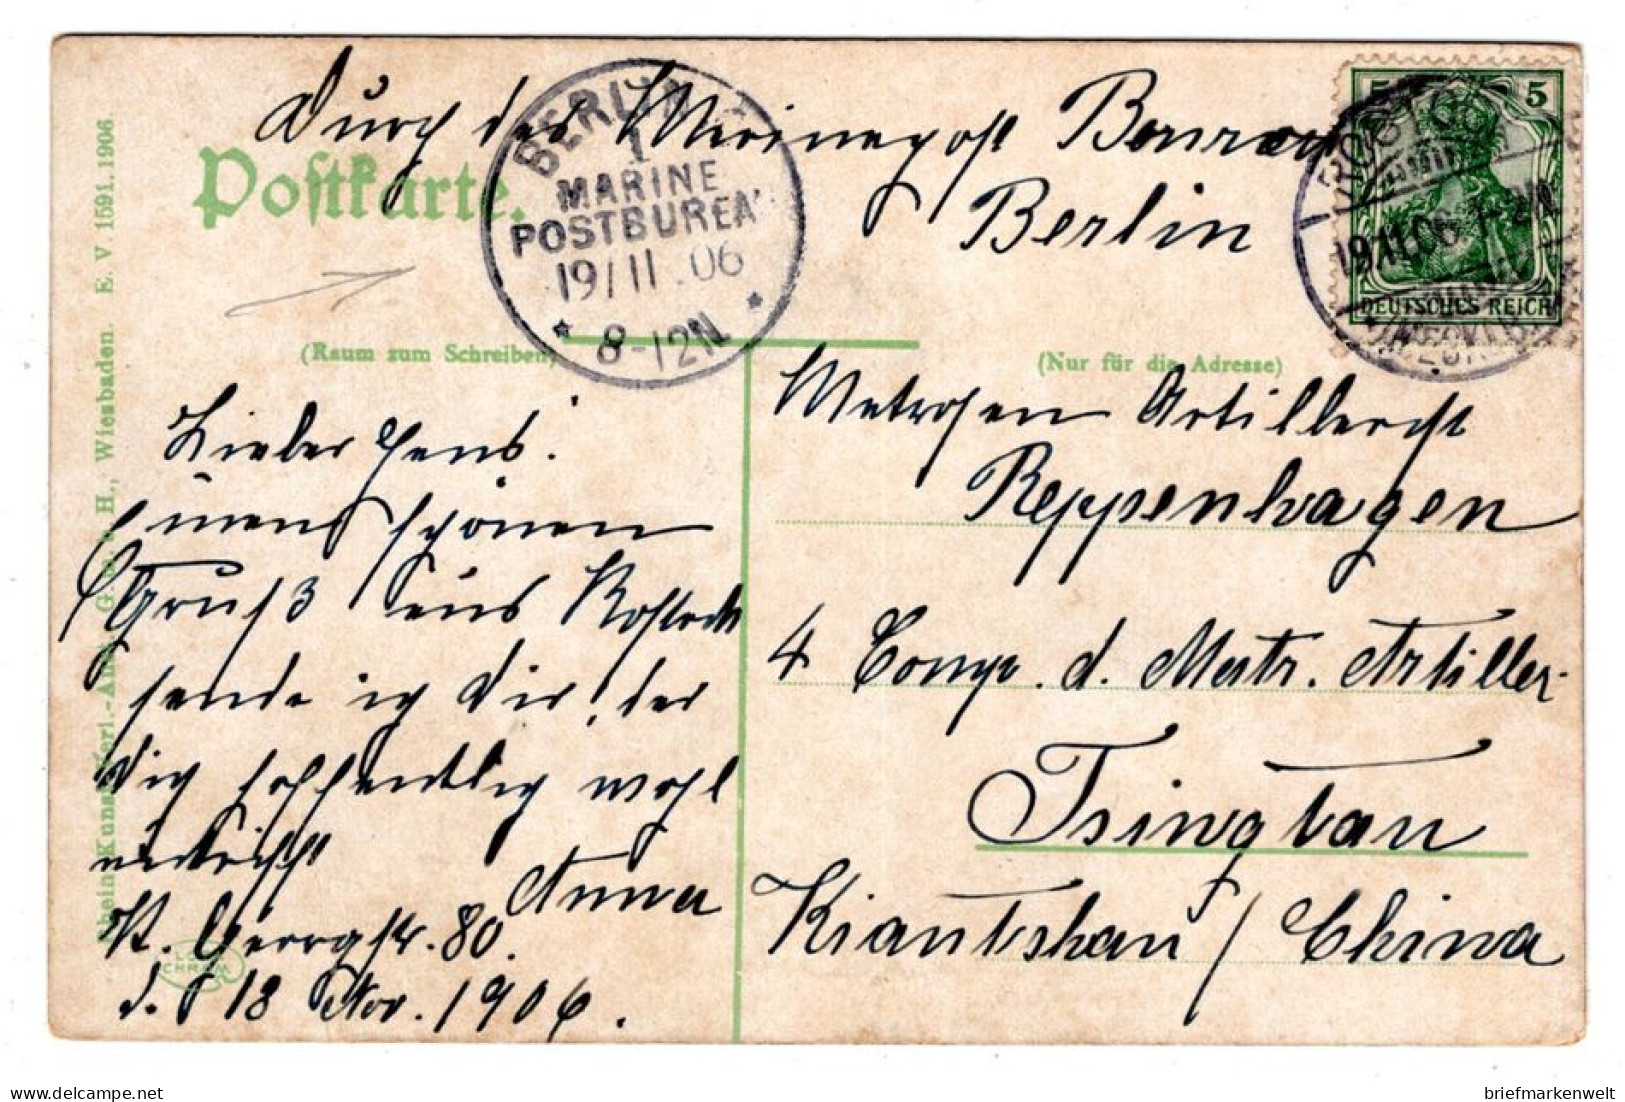 Durch das Marinepost Bureau
Berlin
Postkarte.
BERLIN
1
MARINE
POSTBUREAU
19/11.06
* 8-12N. *
5 5
DEUTSCHES REICH
ROSTOCK
19.11.06. 1-2N.
* (MECKLB.)
(Raum zum Schreiben)
(Nur für die Adresse)
Lieber Hans!
Einen schönen
Gruß aus Rostock
sendet ich Dir, der
Dich hoffentlich wohl
antrifft
Anna
St. Georgstr. 80.
d. 18 Nov. 1906.
Matrosen Artillerist
Reppenhagen
4 Comp. d. Matr. Artiller.
Tsingtau
Kiautschau / China
Rhein. Kunstverl.-Anst. G. m. b. H., Wiesbaden. E. V 1591.1906
briefmarkenwelt
delcampe.net